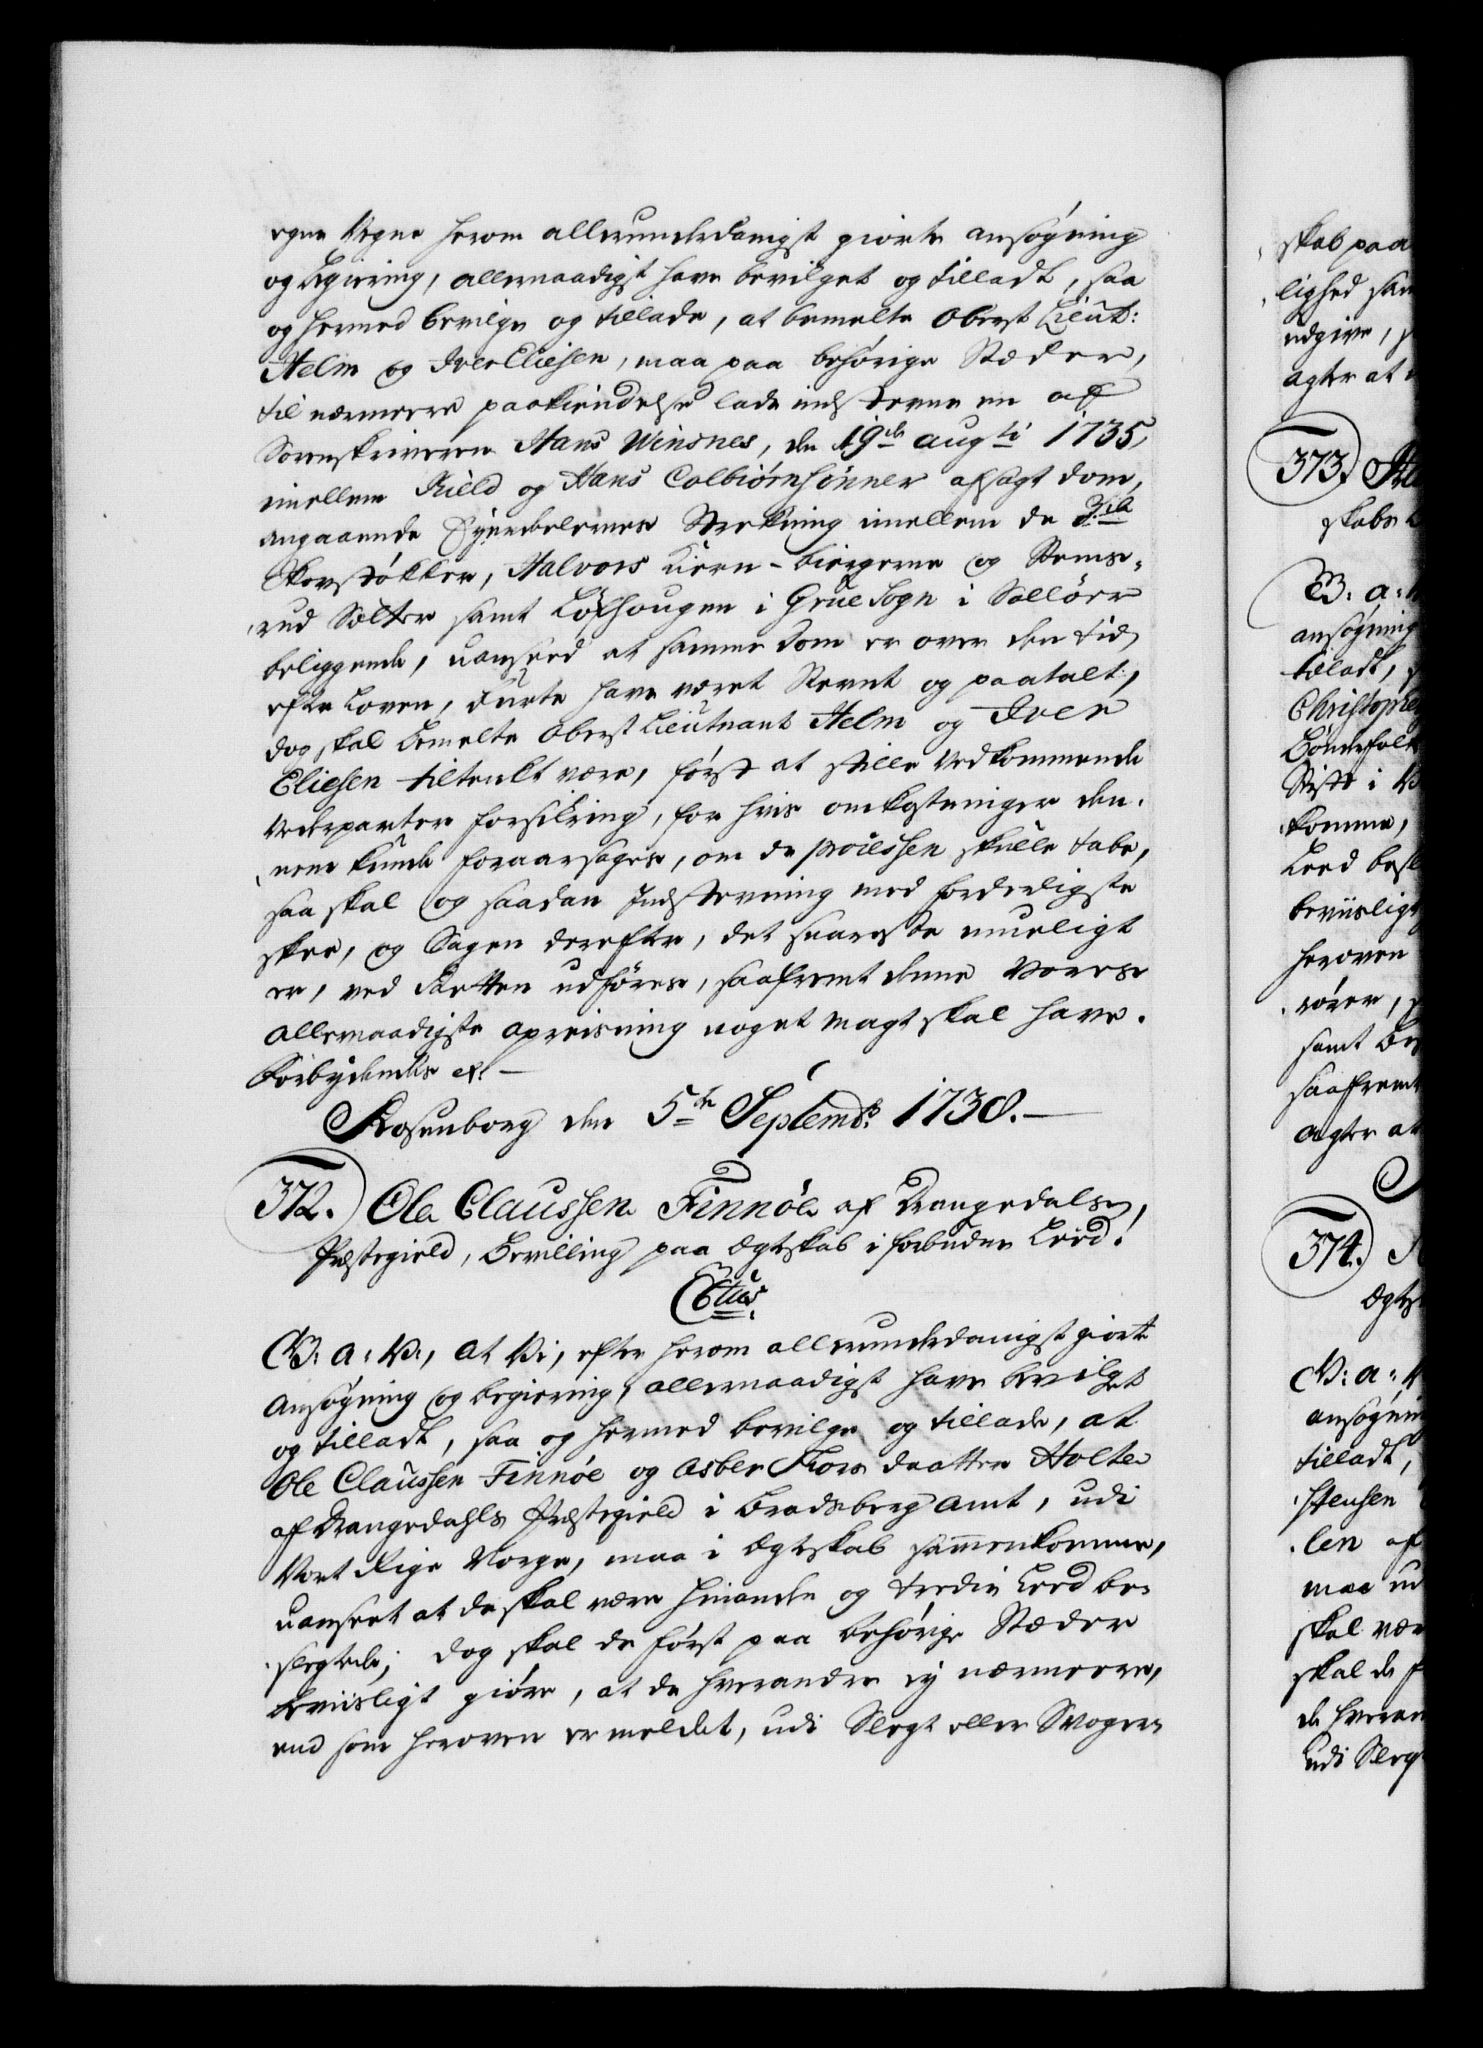 egne Vegne herom allerunderdanigst giorte ansøgning
og begiering, allernaadigst have bevilget og tilladt, saa
og hermed bevilge og tillade, at bemelte Oberst Lieut:
Helm og Iver Eliesen, maa paa behørige Stæder,
til nærmere paakiendelse lade indstevne en af
Sorenskriveren Hans Winsnes, den 19de augti 1735,
imellem Kield og Hans Colbiørnsønner afsagt dom,
angaaende Eyendelernes Strekning imellem de 3de
Skovstøkker, Halvors Kiern-biergene og Rems-
rud Sætter samt Løfhougen i Grue Sogn i Solløer
beliggende, uanseed at samme dom er over den tid,
efter Loven, burte have været Stevnt og paatalt,
dog skal bemelte Oberst Lieutenant Helm og Iver
Eliesen tiltenkt være, først at stille Vedkommende
Vederparter forsikring, for hvis omkostninger den-
nem kunde foraarsages, om de processen skulle tabe,
saa skal og saadan Indstevning med forderligste
skee, og Sagen derefter, det snareste mueligt
er, ved Retten udføres, saafremt denne Vores
allernaadigste opreisning noget magt skal have.
Forbydendes etc. —
Rosenborg den 5te Septembr: 1738. —
372. Ole Claussen Finnöe af Drangedals
Præstegield, Bevilling paa Ægteskab i forbuden Leed.
C6tus.
G: a: V:, at Vi, efter herom allerunderdanigst giort
Ansøgning og begiering, allernaadigst have bevilget
og tilladt, saa og hermed bevilge og tillade, at
Ole Claussen Finnöe og Asber Thors daatter Holte
af Drangedahls Præstegield i Bradsberg Amt, udi
Vort Rige Norge, maa i Ægteskab sammenkomme,
uanseet at de skal være hinanden og tredie Leed be-
slegtede; dog skal de først paa behørige Stæder
beviisligt giøre, at de hverandre ey nærmere,
end som heroven er meldet, udi Slegt eller Svoger-
skab paa
lighed sam
udgive, s
agter at
373.
skabs
G: a:
ansøgning
tiladt,
Christophe
Bøndefolk
Stift i
komme,
Leed besl
beviislig
heroven
rører,
samt
saafremt
agter at
374.
Ægtes
G: a:
ansøgning
tilladt,
stensen
len af
maa ud
skal vær
skal de f
de hveran
udi Sleg